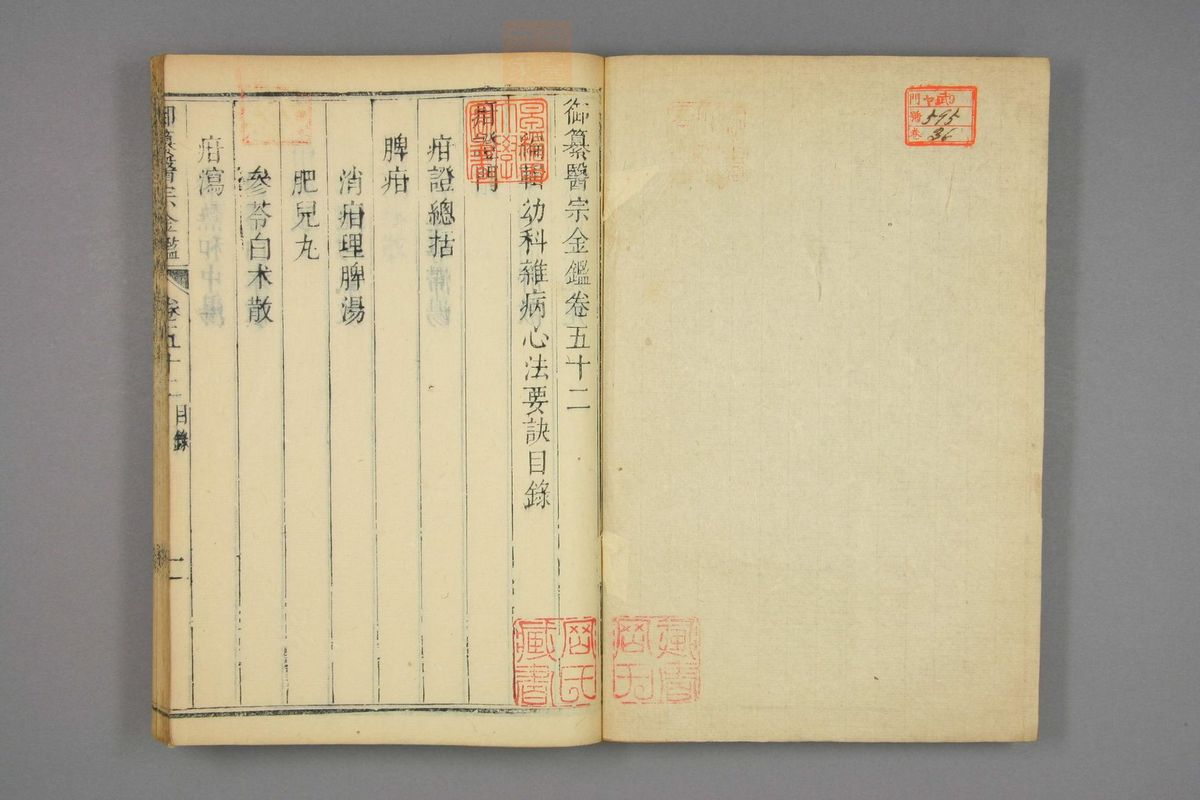 御纂醫宗金鑑卷五十二
編輯幼科雜病心法要訣目錄
疳證門
疳證總括
脾疳
消疳理脾湯
肥兒丸
參苓白术散
疳瀉
御纂醫宗金鑑
卷五十二
目錄
一
藏書
門
號 595
卷 36